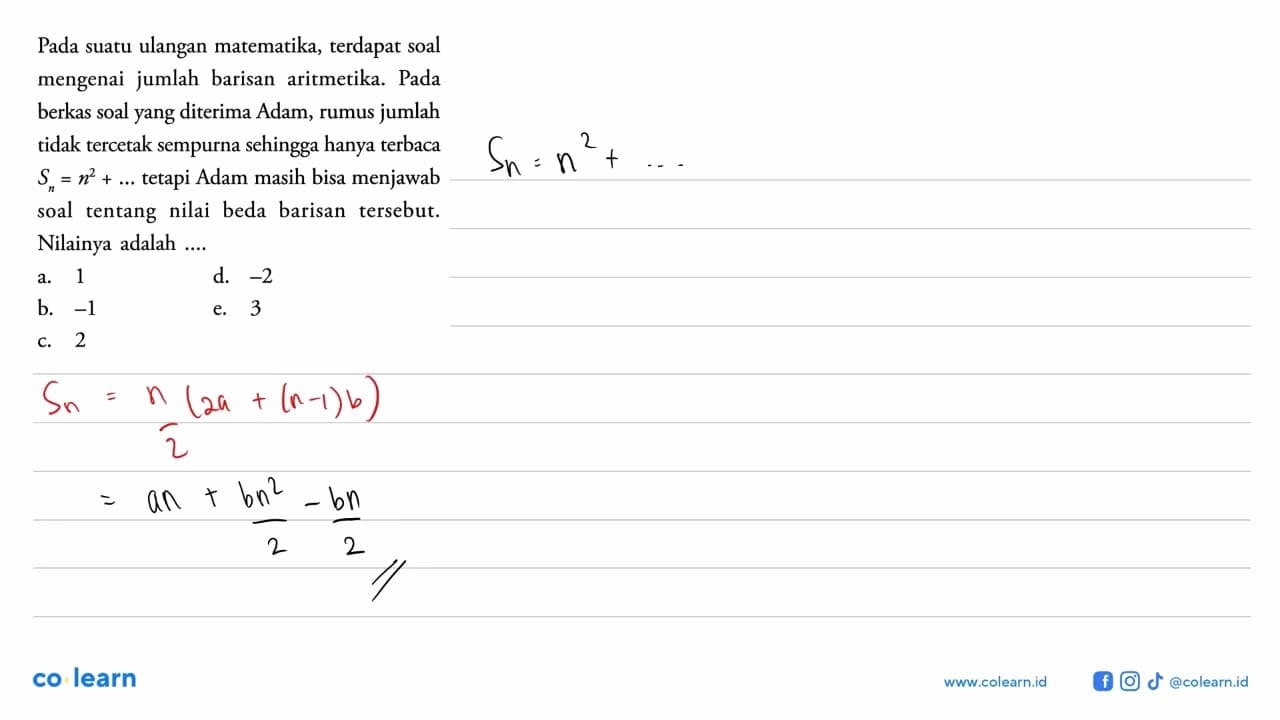 Pada suatu ulangan matematika, terdapat soal
mengenai jumlah barisan aritmetika. Pada
berkas soal yang diterima Adam, rumus jumlah
tidak tercetak sempurna sehingga hanya terbaca
Sₙ = n² + ... tetapi Adam masih bisa menjawab
soal tentang nilai beda barisan tersebut.
Nilainya adalah ....
a. 1 d. –2
b. –1 e. 3
c. 2
Sn = n² + ...
Sn = n/2 (2a + (n-1)b)
= an + bn²/2 - bn/2 //
co learn
www.colearn.id @colearn.id